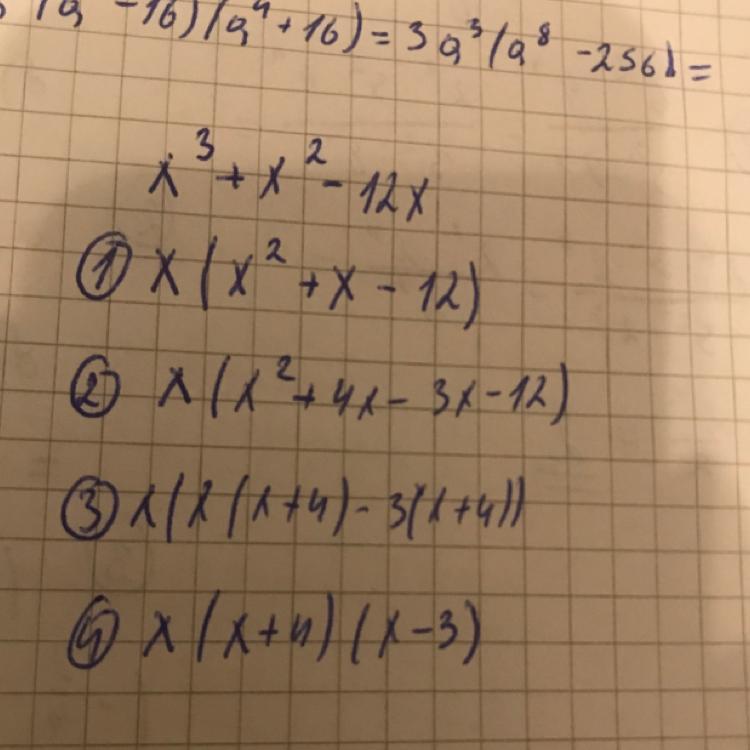 (a⁴-16)(a⁴+16)=3a³(a⁸-256)=
x³+x²-12x
① x(x²+x-12)
② x(x²+4x-3x-12)
③ x(x(x+4)-3(x+4))
④ x(x+4)(x-3)